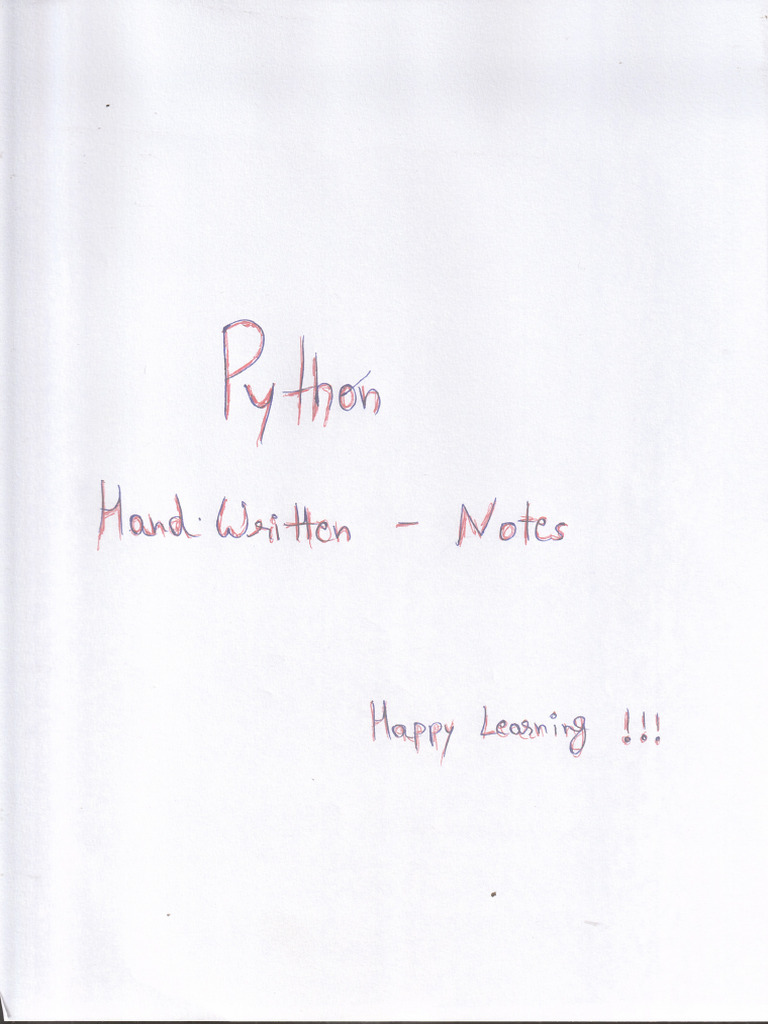 Python
Hand Written - Notes
Happy Learning !!!